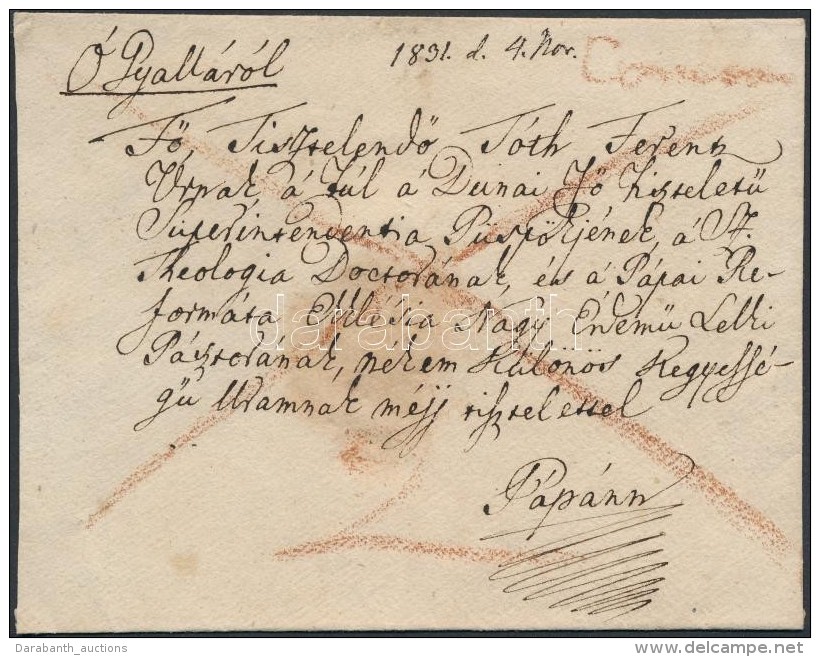 Ó Gyalláról
1831. d. 4. Nov.
Fő, Tisztelendő Tóth Ferentz
Úrnak, á Túl á Dunai Fő Tiszteletü
Superintendentia Püspökjének, á St.
Theologia Doctorának, és á Pápai Re-
formáta Ekklésia Nagy Érdemü Lelki
Pásztorának, nékem Különös Kegyessé-
gü Uramnak méjj tisztelettel
Pápánn
darabanth
Darabanth_auctions
delcampe.net